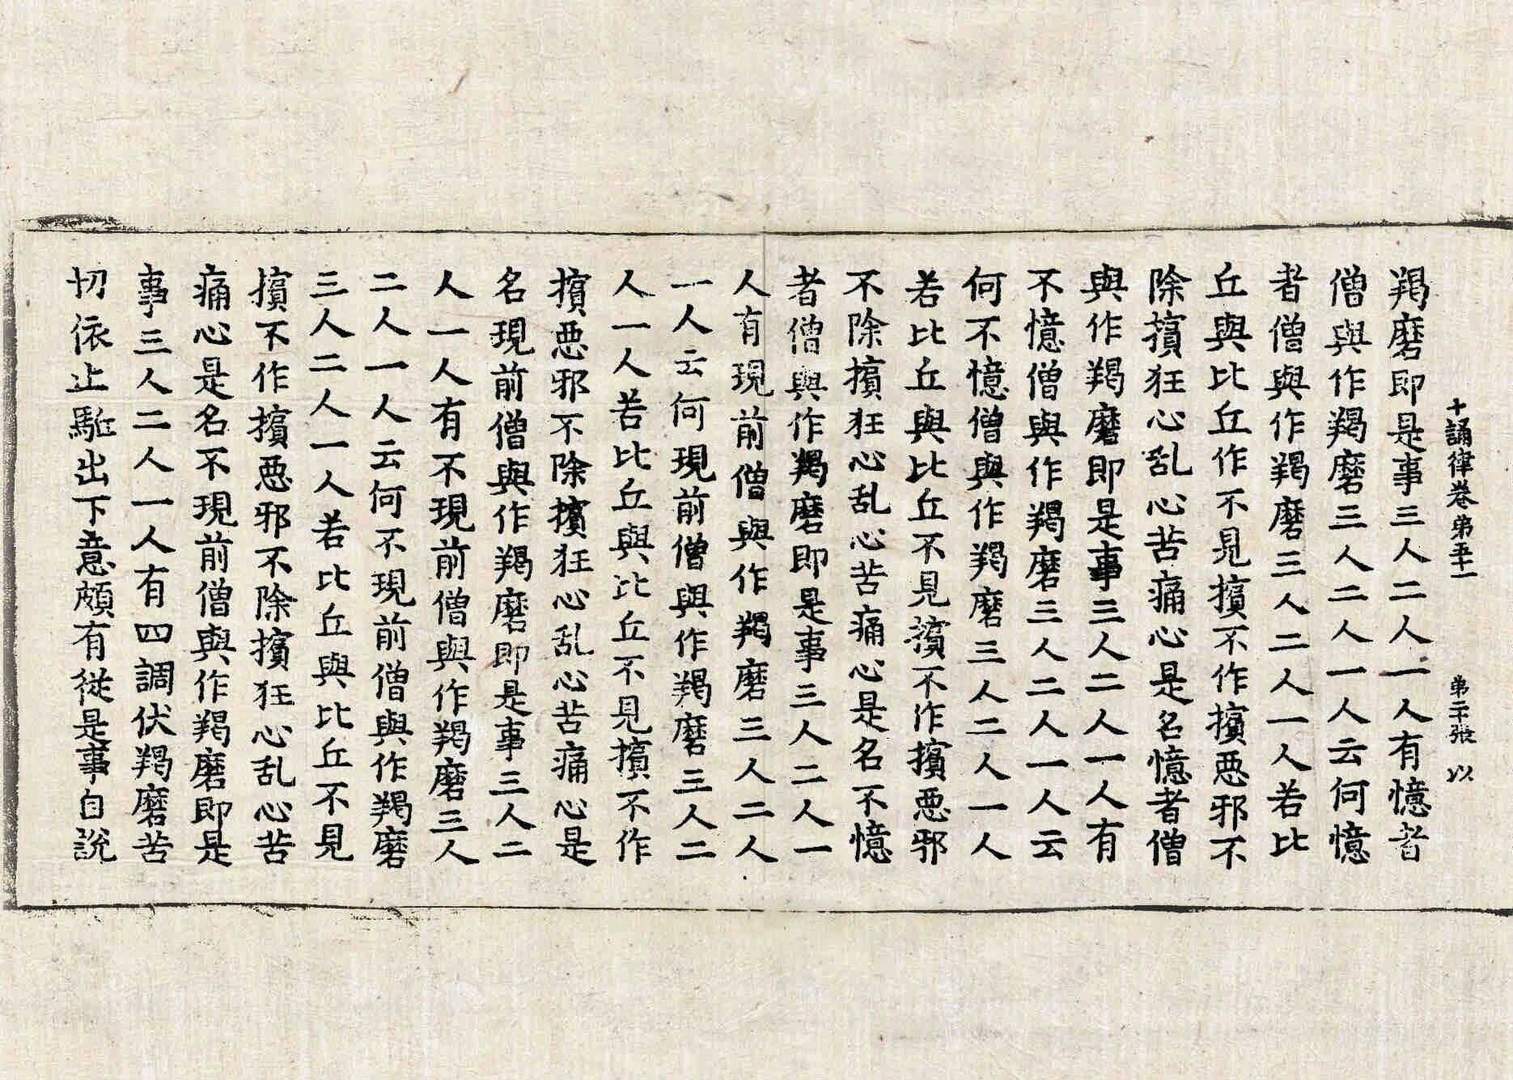 十誦律卷苐五十一 苐二十張 以
羯磨即是事三人二人一人有憶者
僧與作羯磨三人二人一人云何憶
者僧與作羯磨三人二人一人若比
丘與比丘作不見擯不作擯悪邪不
除擯狂心乱心苦痛心是名憶者僧
與作羯磨即是事三人二人一人有
不憶僧與作羯磨三人二人一人云
何不憶僧與作羯磨三人二人一人
若比丘與比丘不見擯不作擯悪邪
不除擯狂心乱心苦痛心是名不憶
者僧與作羯磨即是事三人二人一
人有現前僧與作羯磨三人二人
一人云何現前僧與作羯磨三人二
人一人若比丘與比丘不見擯不作
擯悪邪不除擯狂心乱心苦痛心是
名現前僧與作羯磨即是事三人二
人一人有不現前僧與作羯磨三人
二人一人云何不現前僧與作羯磨
三人二人一人若比丘與比丘不見
擯不作擯悪邪不除擯狂心乱心苦
痛心是名不現前僧與作羯磨即是
事三人二人一人有四調伏羯磨苦
切依止駈出下意頗有從是事自說